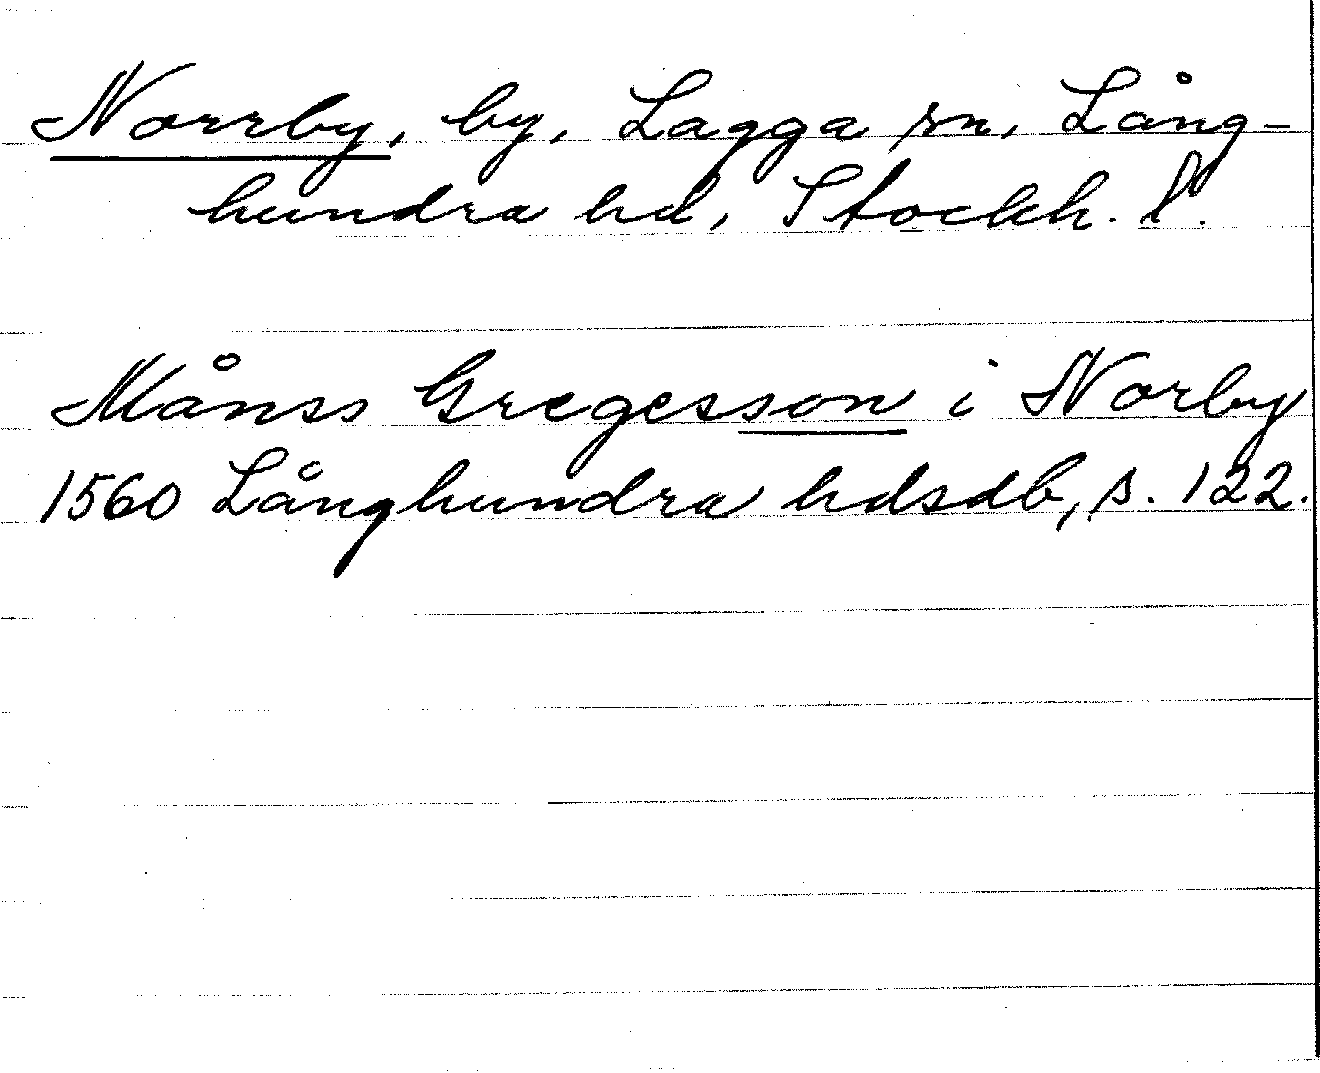 Norrby, by, Lagga sn, Lång-
hundra hd, Stockh. l.
Månss Gregesson i Norby
1560 Långhundra hdsdb, s. 122.